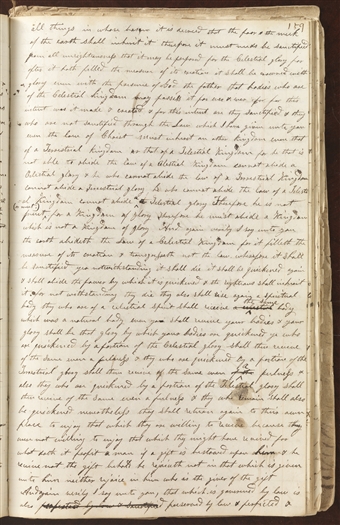 159
all things in whose bosom it is decreed that the poor & the meek
of the earth shall inherit it therefore it must needs be sanctified
from all unrighteousness that it may be prepared for the Celestial glory for
after it hath filled the measure of its creation it shall be crowned with
glory even with the presence of God the father that bodies who are
of the Celestial Kingdom may possess it for ever & ever for for this
intent was it made & created & for this intent are they sanctified & they
who are not sanctified through the law which I have given unto you
even the law of Christ must inherit another Kingdom even that
of a Terestrial Kingdom or that of a Telestial Kingdom for he that is
not able to abide the law of a Celestial Kingdom cannot abide a
Celestial glory & he who cannot abide the law of a Terestrial Kingdom
cannot abide a Terestrial glory he who cannot abide the law of a Telesti
al Kingdom cannot abide a Telestial glory Therefore he is not
meet for a Kingdom of glory Therefore he must abide a Kingdom
which is not a Kingdom of glory And again verily I say unto you
the earth abideth the law of a Celestial Kingdom for it filleth the
measure of its creation & transgresseth not the law wherefore it shall
be sanctified yea notwithstanding it shall die it shall be quickened again
& shall abide the power by which it is quickened & the righteous shall inherit
it for not withstanding they die they also shall rise again a spiritual
body they who are of a Celestial spirit shall receive the same body
which was a natural body even you shall receive your bodies & your
glory shall be that glory by which your bodies are quickened ye who
are quickened by a portion of the Celestial glory shall then receive
of the same even a fulness & they who are quickened by a portion of the
Terestrial glory shall then receive of the same even a fulness &
also they who are quickened by a portion of the Telestial glory shall
then receive of the same even a fulness & they who remain shall also
be quickened nevertheless they shall return again to their own
place to enjoy that which they are willing to receive because they
were not willing to enjoy that which they might have received for
what doth it profit a man if a gift is bestowed upon him & he
receive not the gift behold he rejoiceth not in that which is given
unto him neither rejoice in him who is the giver of the gift
And again verily I say unto you that which is governed by law is
also preserved by law & perfected &